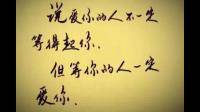 说爱你的人不一定
等得起你.
但等你的人一定
爱你.